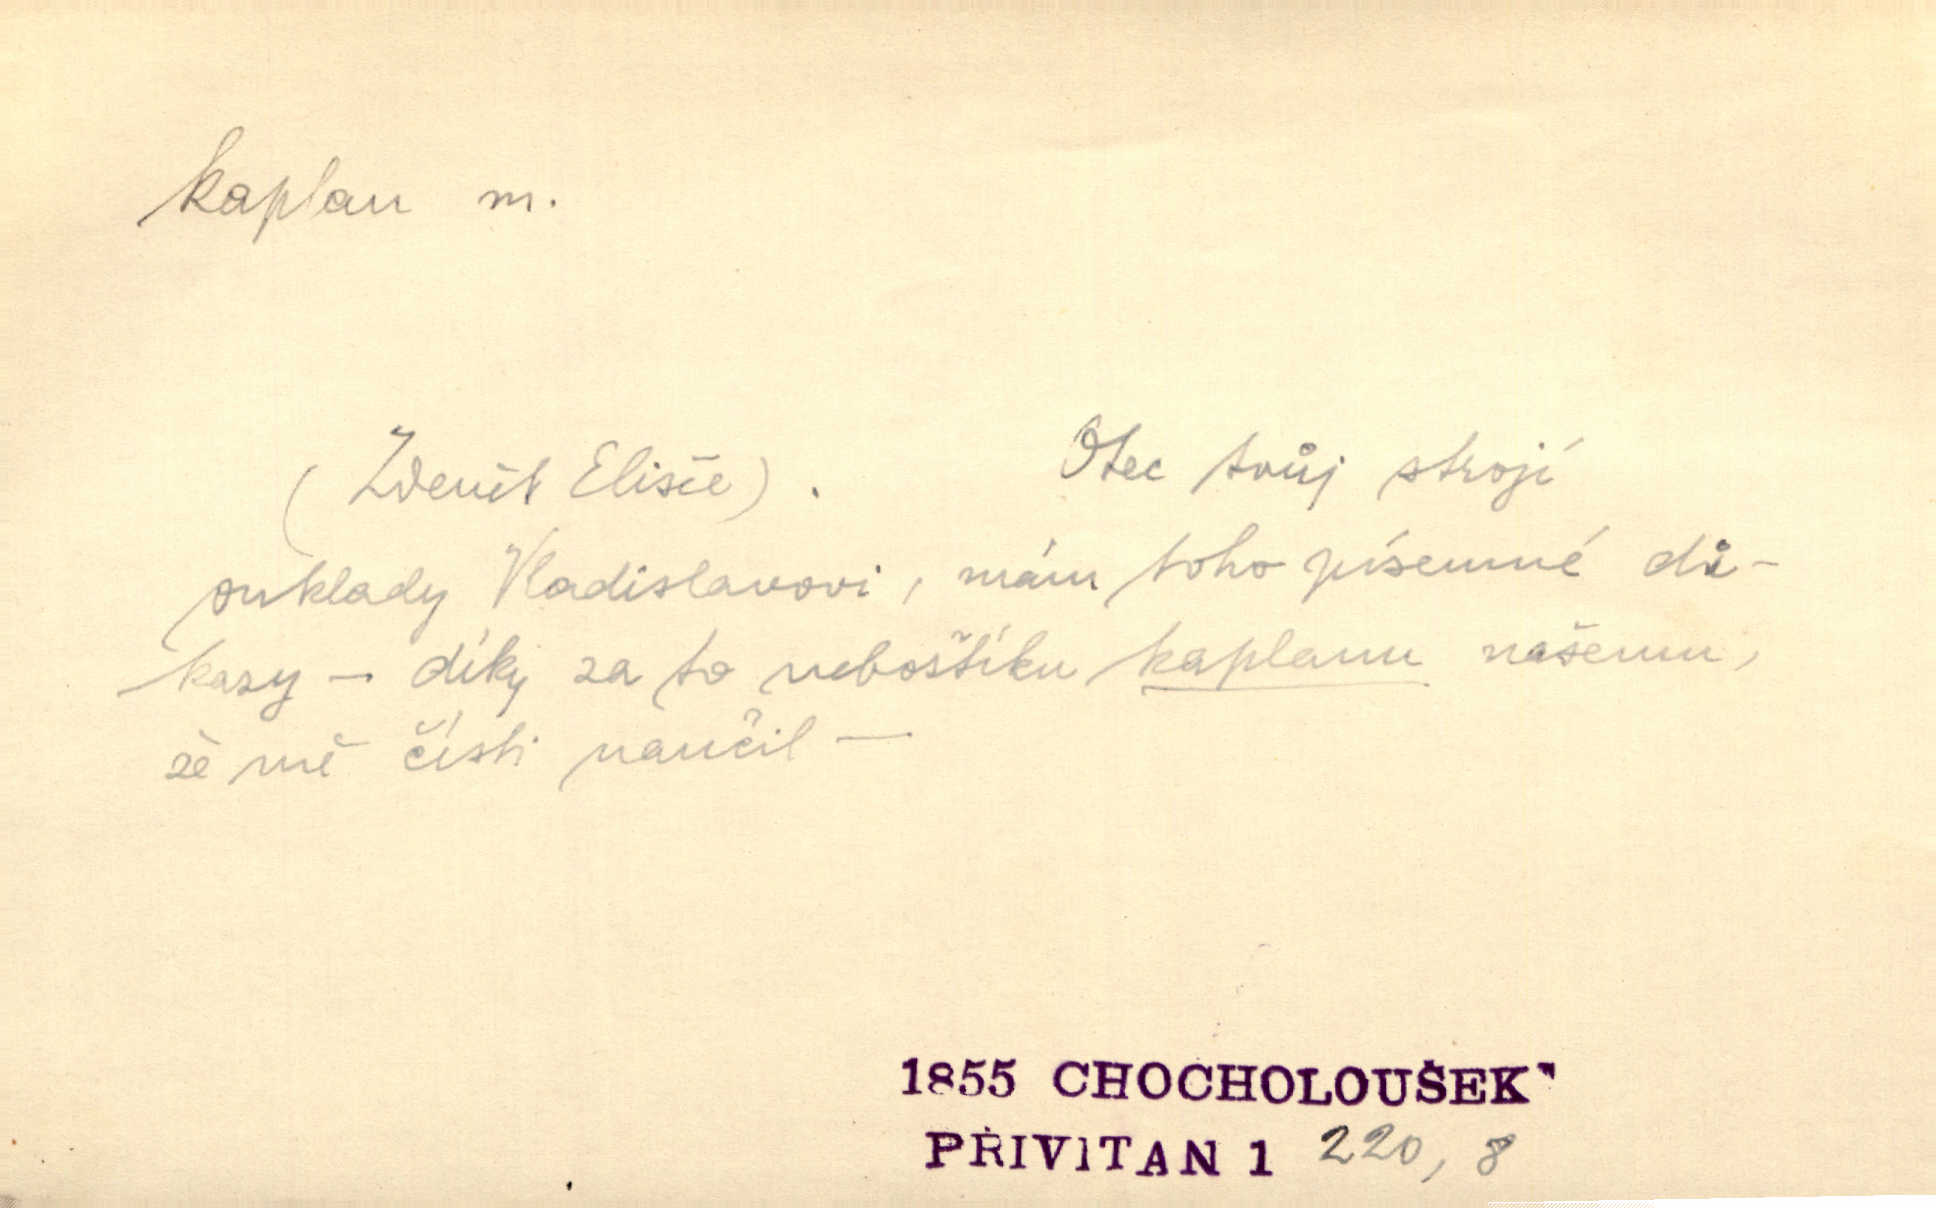 kaplan m.
(Zdeněk Elišce). Otec tvůj strojí
ouklady Vladislavovi, mám toho písemné dů-
kazy – díky za to nebožtíku kaplanu našemu,
že mě čísti naučil –
1855 CHOCHOLOUŠEK
PŘIVITAN 1 220, 8